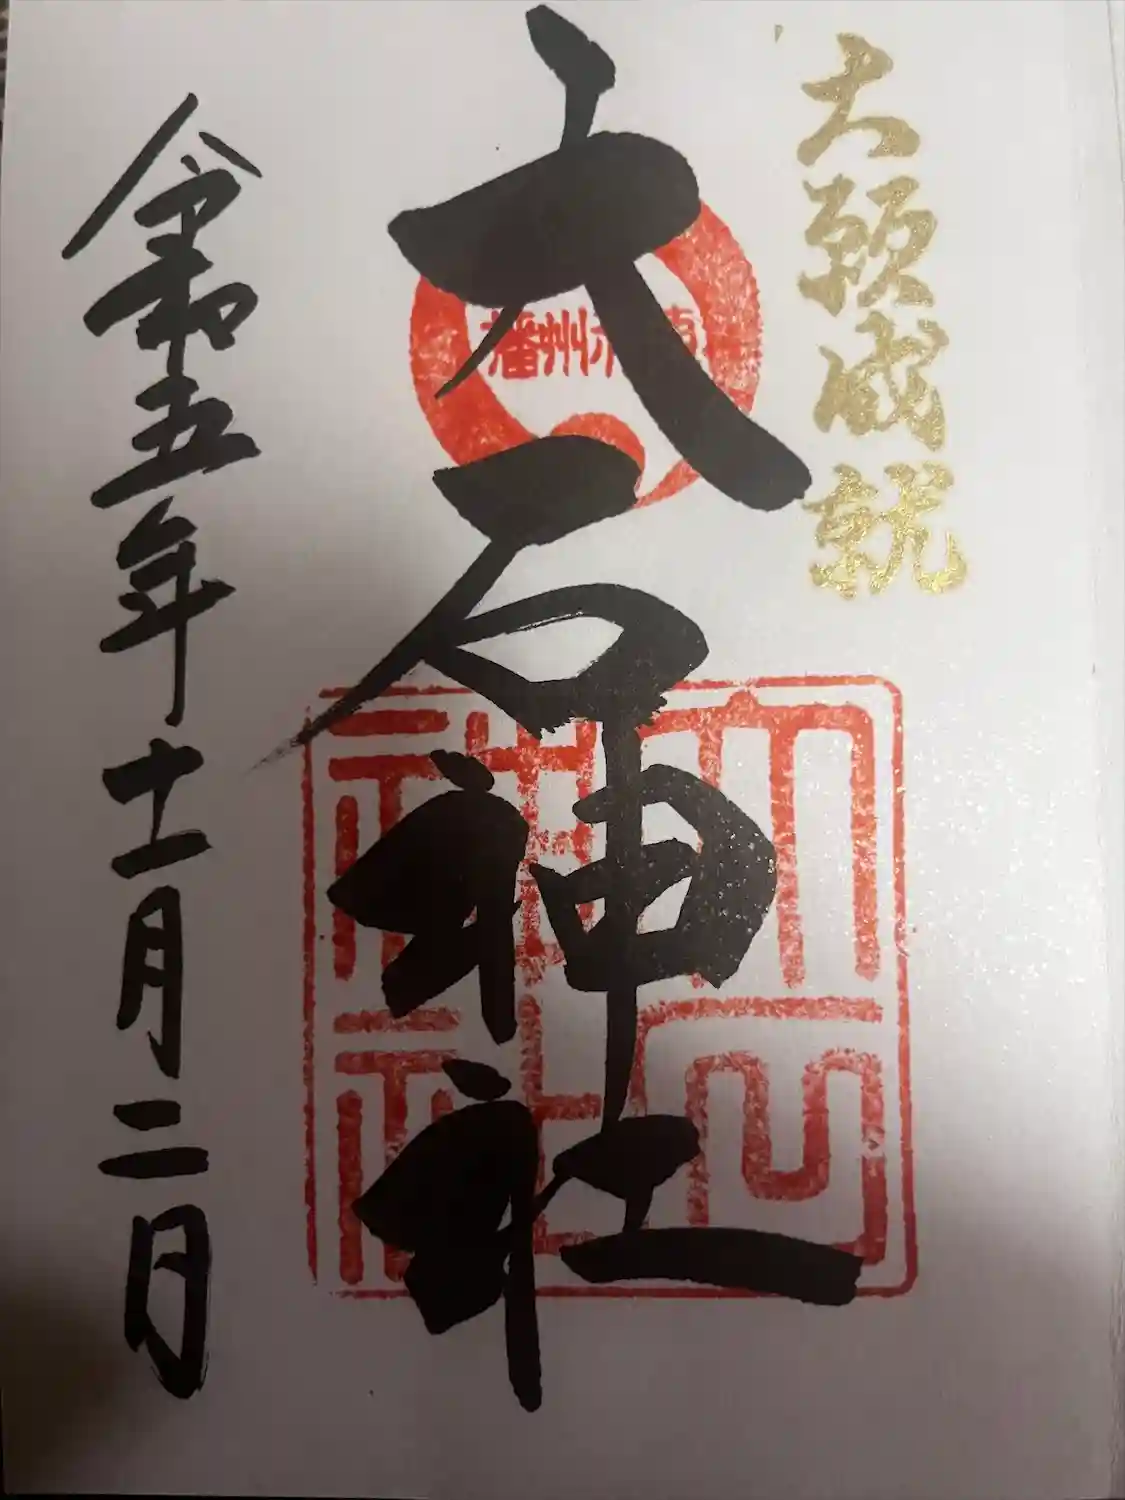 大願成就
播州赤穂
大石神社
大石神社
令和五年十二月二日